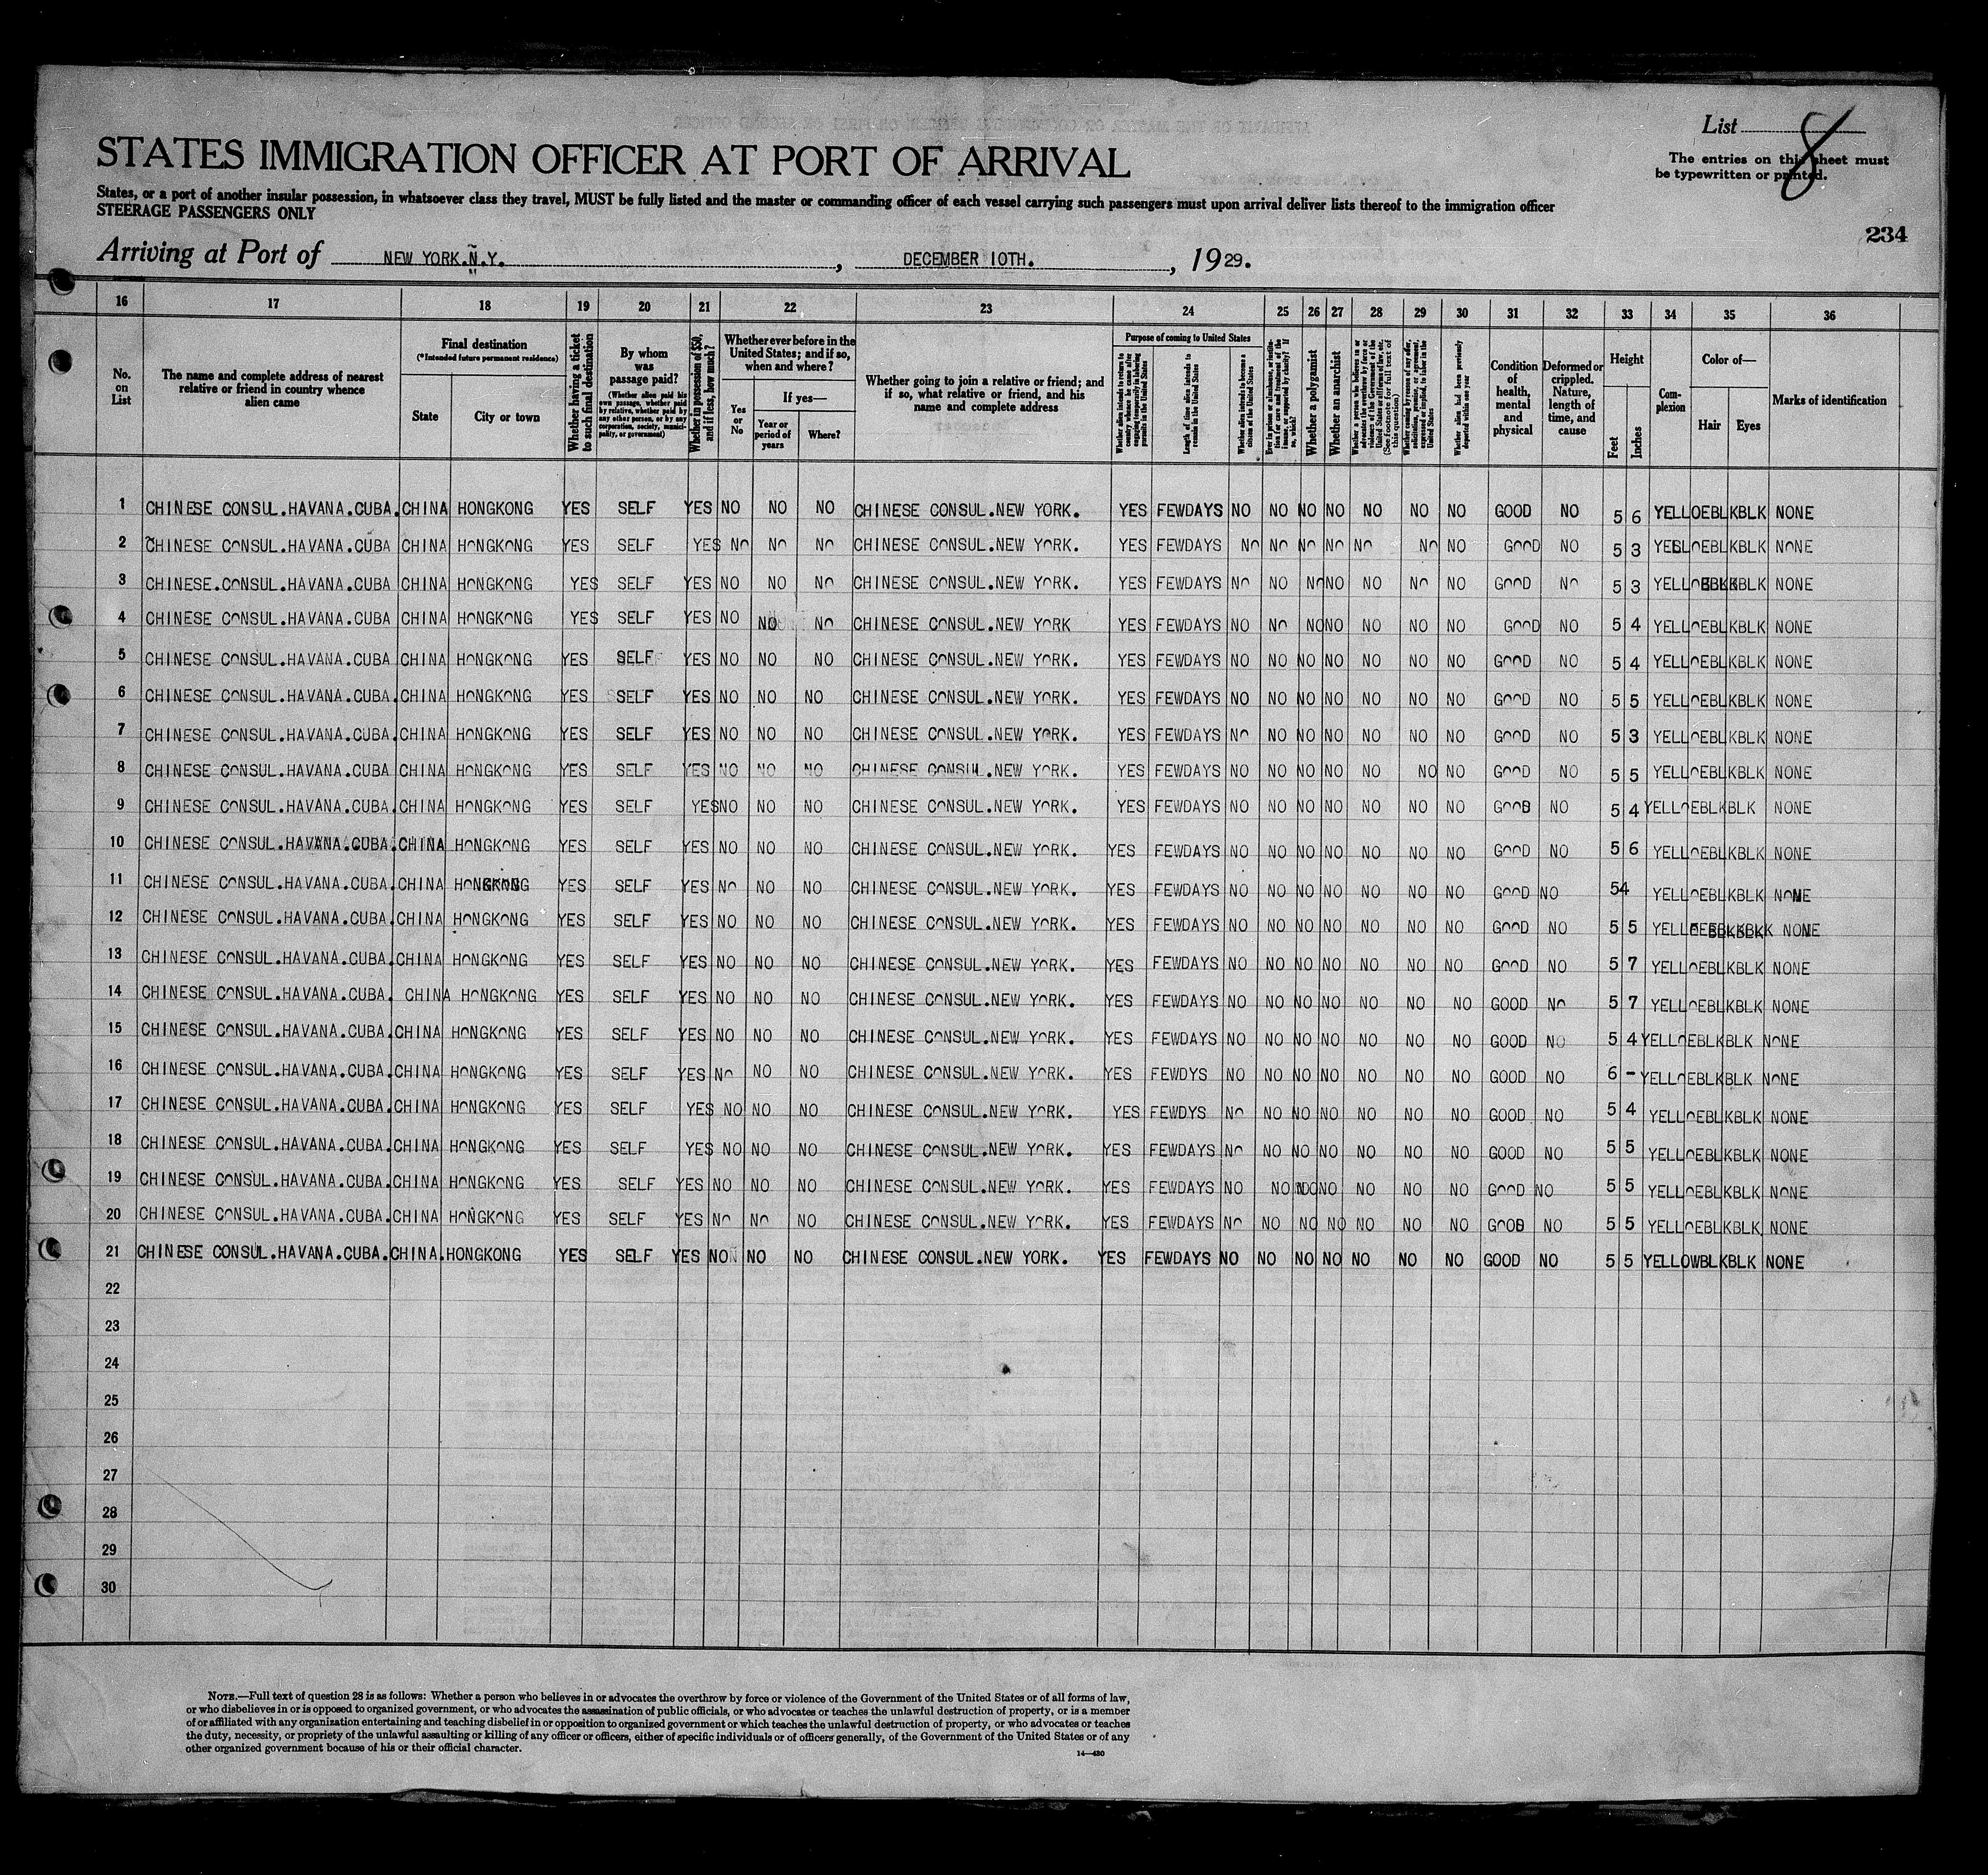 List 8
The entries on this sheet must
be typewritten or printed.
STATES IMMIGRATION OFFICER AT PORT OF ARRIVAL
States, or a port of another insular possession, in whatsoever class they travel, MUST be fully listed and the master or commanding officer of each vessel carrying such passengers must upon arrival deliver lists thereof to the immigration officer
STEERAGE PASSENGERS ONLY
234
Arriving at Port of NEW YORK.N.Y. , DECEMBER 10TH. , 1929.
16 17 18 19 20 21 22 23 24 25 26 27 28 29 30 31 32 33 34 35 36
No. on List
The name and complete address of nearest relative or friend in country whence alien came
Final destination
(*Intended future permanent residence)
State
City or town
Whether having a ticket to such final destination
By whom was passage paid?
(Whether alien paid his own passage, whether paid by relative, whether paid by any other person, or by any corporation, society, municipality, or government)
Whether in possession of $50, and if less, how much?
Whether ever before in the United States; and if so, when and where?
Yes or No
If yes—
Year or period of years
Where?
Whether going to join a relative or friend; and if so, what relative or friend, and his name and complete address
Purpose of coming to United States
Whether alien intends to return to country whence he came after engaging temporarily in laboring pursuits in the United States
Length of time alien intends to remain in the United States
Whether alien intends to become a citizen of the United States
Ever in prison or almshouse, or institution for care and treatment of the insane, or supported by charity? If so, which?
Whether a polygamist
Whether an anarchist
Whether a person who believes in or advocates the overthrow by force or violence of the Government of the United States or all forms of law, etc. (See footnote for full text of this question)
Whether coming by reason of any offer, solicitation, promise, or agreement, expressed or implied, to labor in the United States
Whether alien had been previously deported within one year
Condition of health, mental and physical
Deformed or crippled. Nature, length of time, and cause
Height
Feet
Inches
Complexion
Color of—
Hair
Eyes
Marks of identification
1 CHINESE CONSUL.HAVANA.CUBA. CHINA HONGKONG YES SELF YES NO NO NO CHINESE CONSUL.NEW YORK. YES FEWDAYS NO NO NO NO NO NO NO GOOD NO 5 6 YELLOEBLKBLK NONE
2 CHINESE CONSUL.HAVANA.CUBA CHINA HONGKONG YES SELF YES NO NO NO CHINESE CONSUL.NEW YORK. YES FEWDAYS NO NO NO NO NO NO NO GOOD NO 5 3 YELLOEBLKBLK NONE
3 CHINESE.CONSUL.HAVANA.CUBA CHINA HONGKONG YES SELF YES NO NO NO CHINESE CONSUL.NEW YORK. YES FEWDAYS NO NO NO NO NO NO NO GOOD NO 5 3 YELLOEBLKBLK NONE
4 CHINESE CONSUL.HAVANA.CUBA CHINA HONGKONG YES SELF YES NO NO NO CHINESE CONSUL.NEW YORK YES FEWDAYS NO NO NO NO NO NO NO GOOD NO 5 4 YELLOEBLKBLK NONE
5 CHINESE CONSUL.HAVANA.CUBA CHINA HONGKONG YES SELF YES NO NO NO CHINESE CONSUL.NEW YORK. YES FEWDAYS NO NO NO NO NO NO NO GOOD NO 5 4 YELLOEBLKBLK NONE
6 CHINESE CONSUL.HAVANA.CUBA. CHINA HONGKONG YES SELF YES NO NO NO CHINESE CONSUL.NEW YORK. YES FEWDAYS NO NO NO NO NO NO NO GOOD NO 5 5 YELLOEBLKBLK NONE
7 CHINESE CONSUL.HAVANA.CUBA. CHINA HONGKONG YES SELF YES NO NO NO CHINESE CONSUL.NEW YORK. YES FEWDAYS NO NO NO NO NO NO NO GOOD NO 5 3 YELLOEBLKBLK NONE
8 CHINESE CONSUL.HAVANA.CUBA. CHINA HONGKONG YES SELF YES NO NO NO CHINESE CONSUL.NEW YORK. YES FEWDAYS NO NO NO NO NO NO NO GOOD NO 5 5 YELLOEBLKBLK NONE
9 CHINESE CONSUL.HAVANA.CUBA. CHINA HONGKONG YES SELF YES NO NO NO CHINESE CONSUL.NEW YORK. YES FEWDAYS NO NO NO NO NO NO NO GOOD NO 5 4 YELLOEBLKBLK NONE
10 CHINESE CONSUL.HAVANA.CUBA. CHINA HONGKONG YES SELF YES NO NO NO CHINESE CONSUL.NEW YORK. YES FEWDAYS NO NO NO NO NO NO NO GOOD NO 5 6 YELLOEBLKBLK NONE
11 CHINESE CONSUL.HAVANA.CUBA. CHINA HONGKONG YES SELF YES NO NO NO CHINESE CONSUL.NEW YORK. YES FEWDAYS NO NO NO NO NO NO NO GOOD NO 54 YELLOEBLKBLK NONE
12 CHINESE CONSUL.HAVANA.CUBA. CHINA HONGKONG YES SELF YES NO NO NO CHINESE CONSUL.NEW YORK. YES FEWDAYS NO NO NO NO NO NO NO GOOD NO 5 5 NONE
13 CHINESE CONSUL.HAVANA.CUBA. CHINA HONGKONG YES SELF YES NO NO NO CHINESE CONSUL.NEW YORK. YES FEWDAYS NO NO NO NO NO NO NO GOOD NO 5 7 YELLOEBLKBLK NONE
14 CHINESE CONSUL.HAVANA.CUBA. CHINA HONGKONG YES SELF YES NO NO NO CHINESE CONSUL.NEW YORK. YES FEWDAYS NO NO NO NO NO NO NO GOOD NO 5 7 YELLOEBLKBLK NONE
15 CHINESE CONSUL.HAVANA.CUBA. CHINA HONGKONG YES SELF YES NO NO NO CHINESE CONSUL.NEW YORK. YES FEWDAYS NO NO NO NO NO NO NO GOOD NO 5 4 YELLOEBLKBLK NONE
16 CHINESE CONSUL.HAVANA.CUBA. CHINA HONGKONG YES SELF YES NO NO NO CHINESE CONSUL.NEW YORK. YES FEWDYS NO NO NO NO NO NO NO GOOD NO 6 - YELLOEBLKBLK NONE
17 CHINESE CONSUL.HAVANA.CUBA. CHINA HONGKONG YES SELF YES NO NO NO CHINESE CONSUL.NEW YORK. YES FEWDYS NO NO NO NO NO NO NO GOOD NO 5 4 YELLOEBLKBLK NONE
18 CHINESE CONSUL.HAVANA.CUBA. CHINA HONGKONG YES SELF YES NO NO NO CHINESE CONSUL.NEW YORK. YES FEWDAYS NO NO NO NO NO NO NO GOOD NO 5 5 YELLOEBLKBLK NONE
19 CHINESE CONSUL.HAVANA.CUBA. CHINA HONGKONG YES SELF YES NO NO NO CHINESE CONSUL.NEW YORK. YES FEWDAYS NO NO NO NO NO NO NO GOOD NO 5 5 YELLOEBLKBLK NONE
20 CHINESE CONSUL.HAVANA.CUBA. CHINA HONGKONG YES SELF YES NO NO NO CHINESE CONSUL.NEW YORK. YES FEWDAYS NO NO NO NO NO NO NO GOOD NO 5 5 YELLOEBLKBLK NONE
21 CHINESE CONSUL.HAVANA.CUBA. CHINA. HONGKONG YES SELF YES NO NO NO CHINESE CONSUL.NEW YORK. YES FEWDAYS NO NO NO NO NO NO NO GOOD NO 5 5 YELLOWBLKBLK NONE
22
23
24
25
26
27
28
29
30
NOTE.—Full text of question 28 is as follows: Whether a person who believes in or advocates the overthrow by force or violence of the Government of the United States or of all forms of law,
or who disbelieves in or is opposed to organized government, or who advocates the assassination of public officials, or who advocates or teaches the unlawful destruction of property, or is a member
of or affiliated with any organization entertaining and teaching disbelief in or opposition to organized government or which teaches the unlawful destruction of property, or who advocates or teaches
the duty, necessity, or propriety of the unlawful assaulting or killing of any officer or officers, either of specific individuals or of officers generally, of the Government of the United States or of any
other organized government because of his or their official character.
14—430